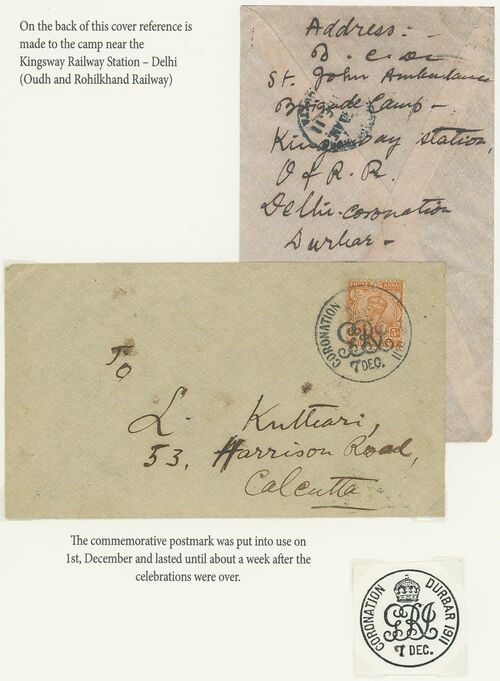 On the back of this cover reference is
made to the camp near the
Kingsway Railway Station – Delhi
(Oudh and Rohilkhand Railway)
Address:-
St. John Ambulance
Brigade Camp -
Kingsway station,
O & R. R.
Delhi-coronation
Durbar -
CORONATION 1911
GRI
7 DEC.
To
L. Kuthari,
53, Harrison Road,
Calcutta
The commemorative postmark was put into use on
1st, December and lasted until about a week after the
celebrations were over.
CORONATION DURBAR 1911
GRI
7 DEC.